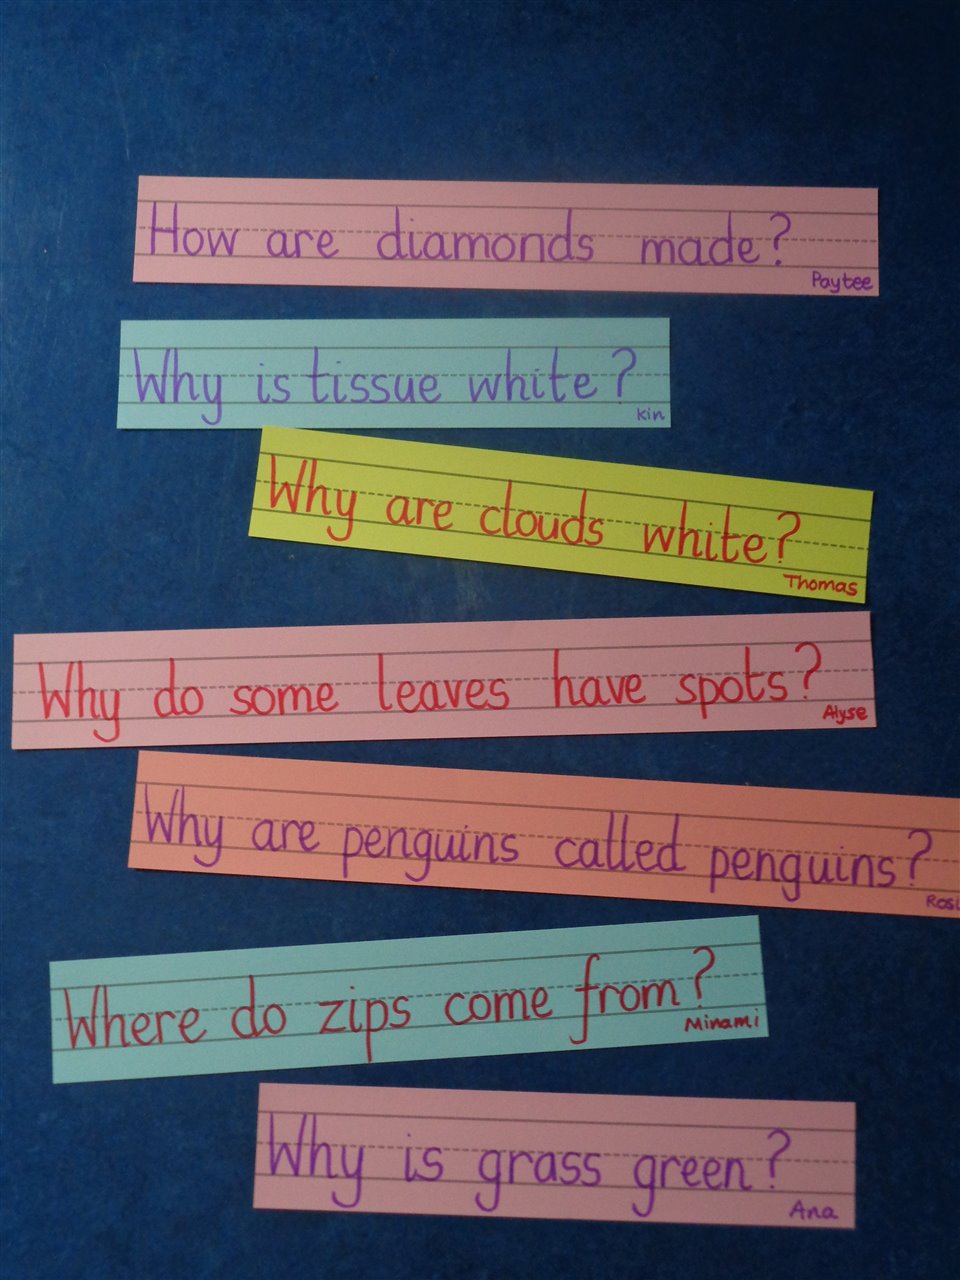 How are diamonds made?
Paytee
Why is tissue white?
kin
Why are clouds white?
Thomas
Why do some leaves have spots?
Alyse
Why are penguins called penguins?
Where do zips come from?
Minami
Why is grass green?
Ana